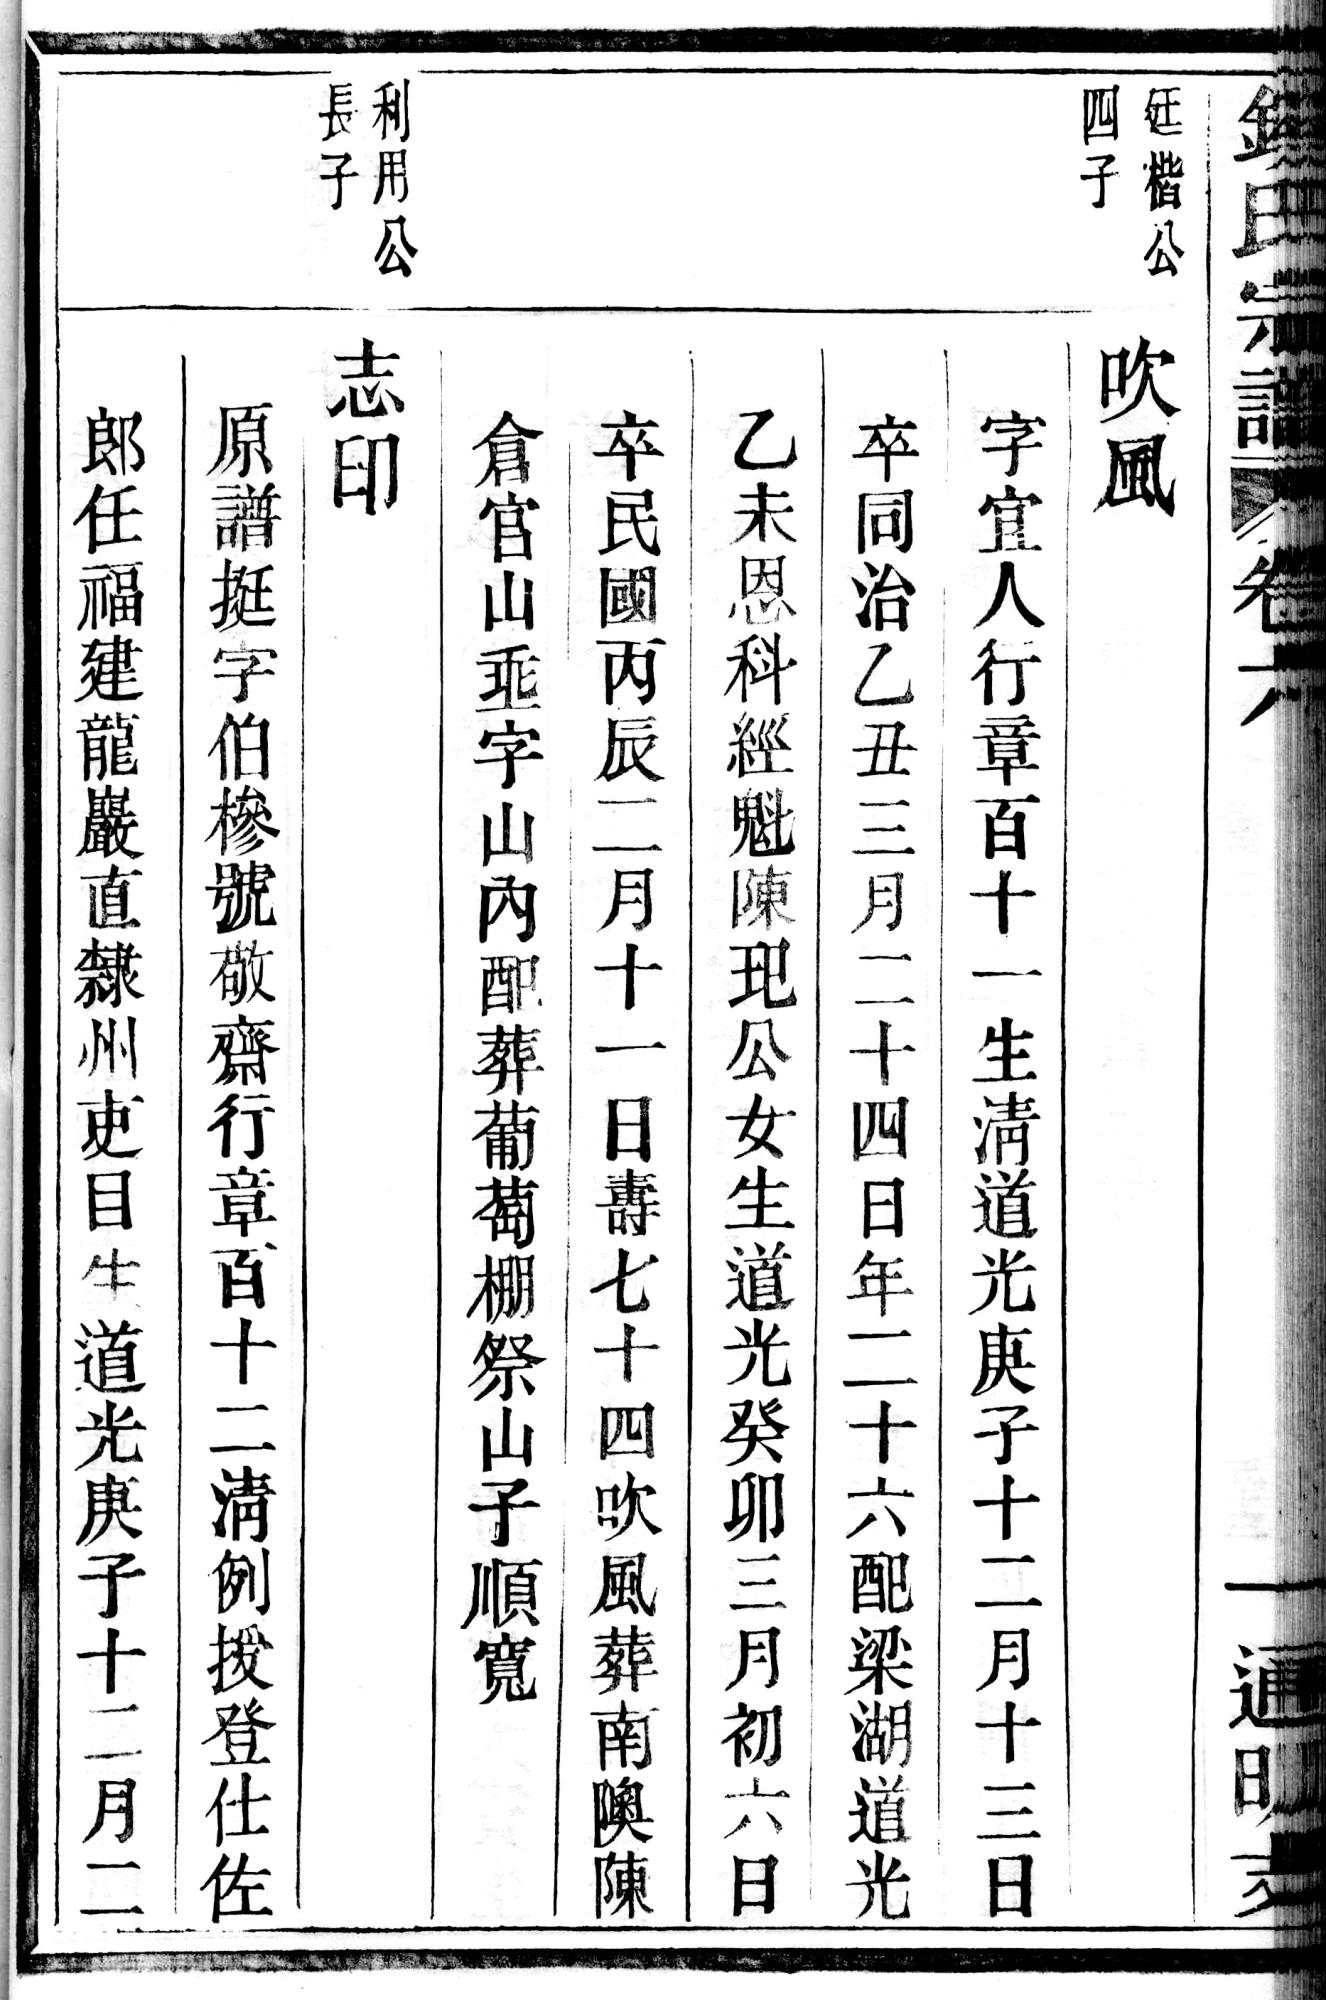 氏宗譜 卷六 一 通明支
廷楷公
四子
吹風
字宜人行章百十一生淸道光庚子十二月十三日
卒同治乙丑三月二十四日年二十六配梁湖道光
乙未恩科經魁陳玘公女生道光癸卯三月初六日
卒民國丙辰二月十一日壽七十四吹風葬南隩陳
倉官山乖字山內配葬葡萄棚祭山子順寬
利用公
長子
志印
原譜挺字伯槮號敬齋行章百十二淸例授登仕佐
郎任福建龍巖直隸州吏目生道光庚子十二月二